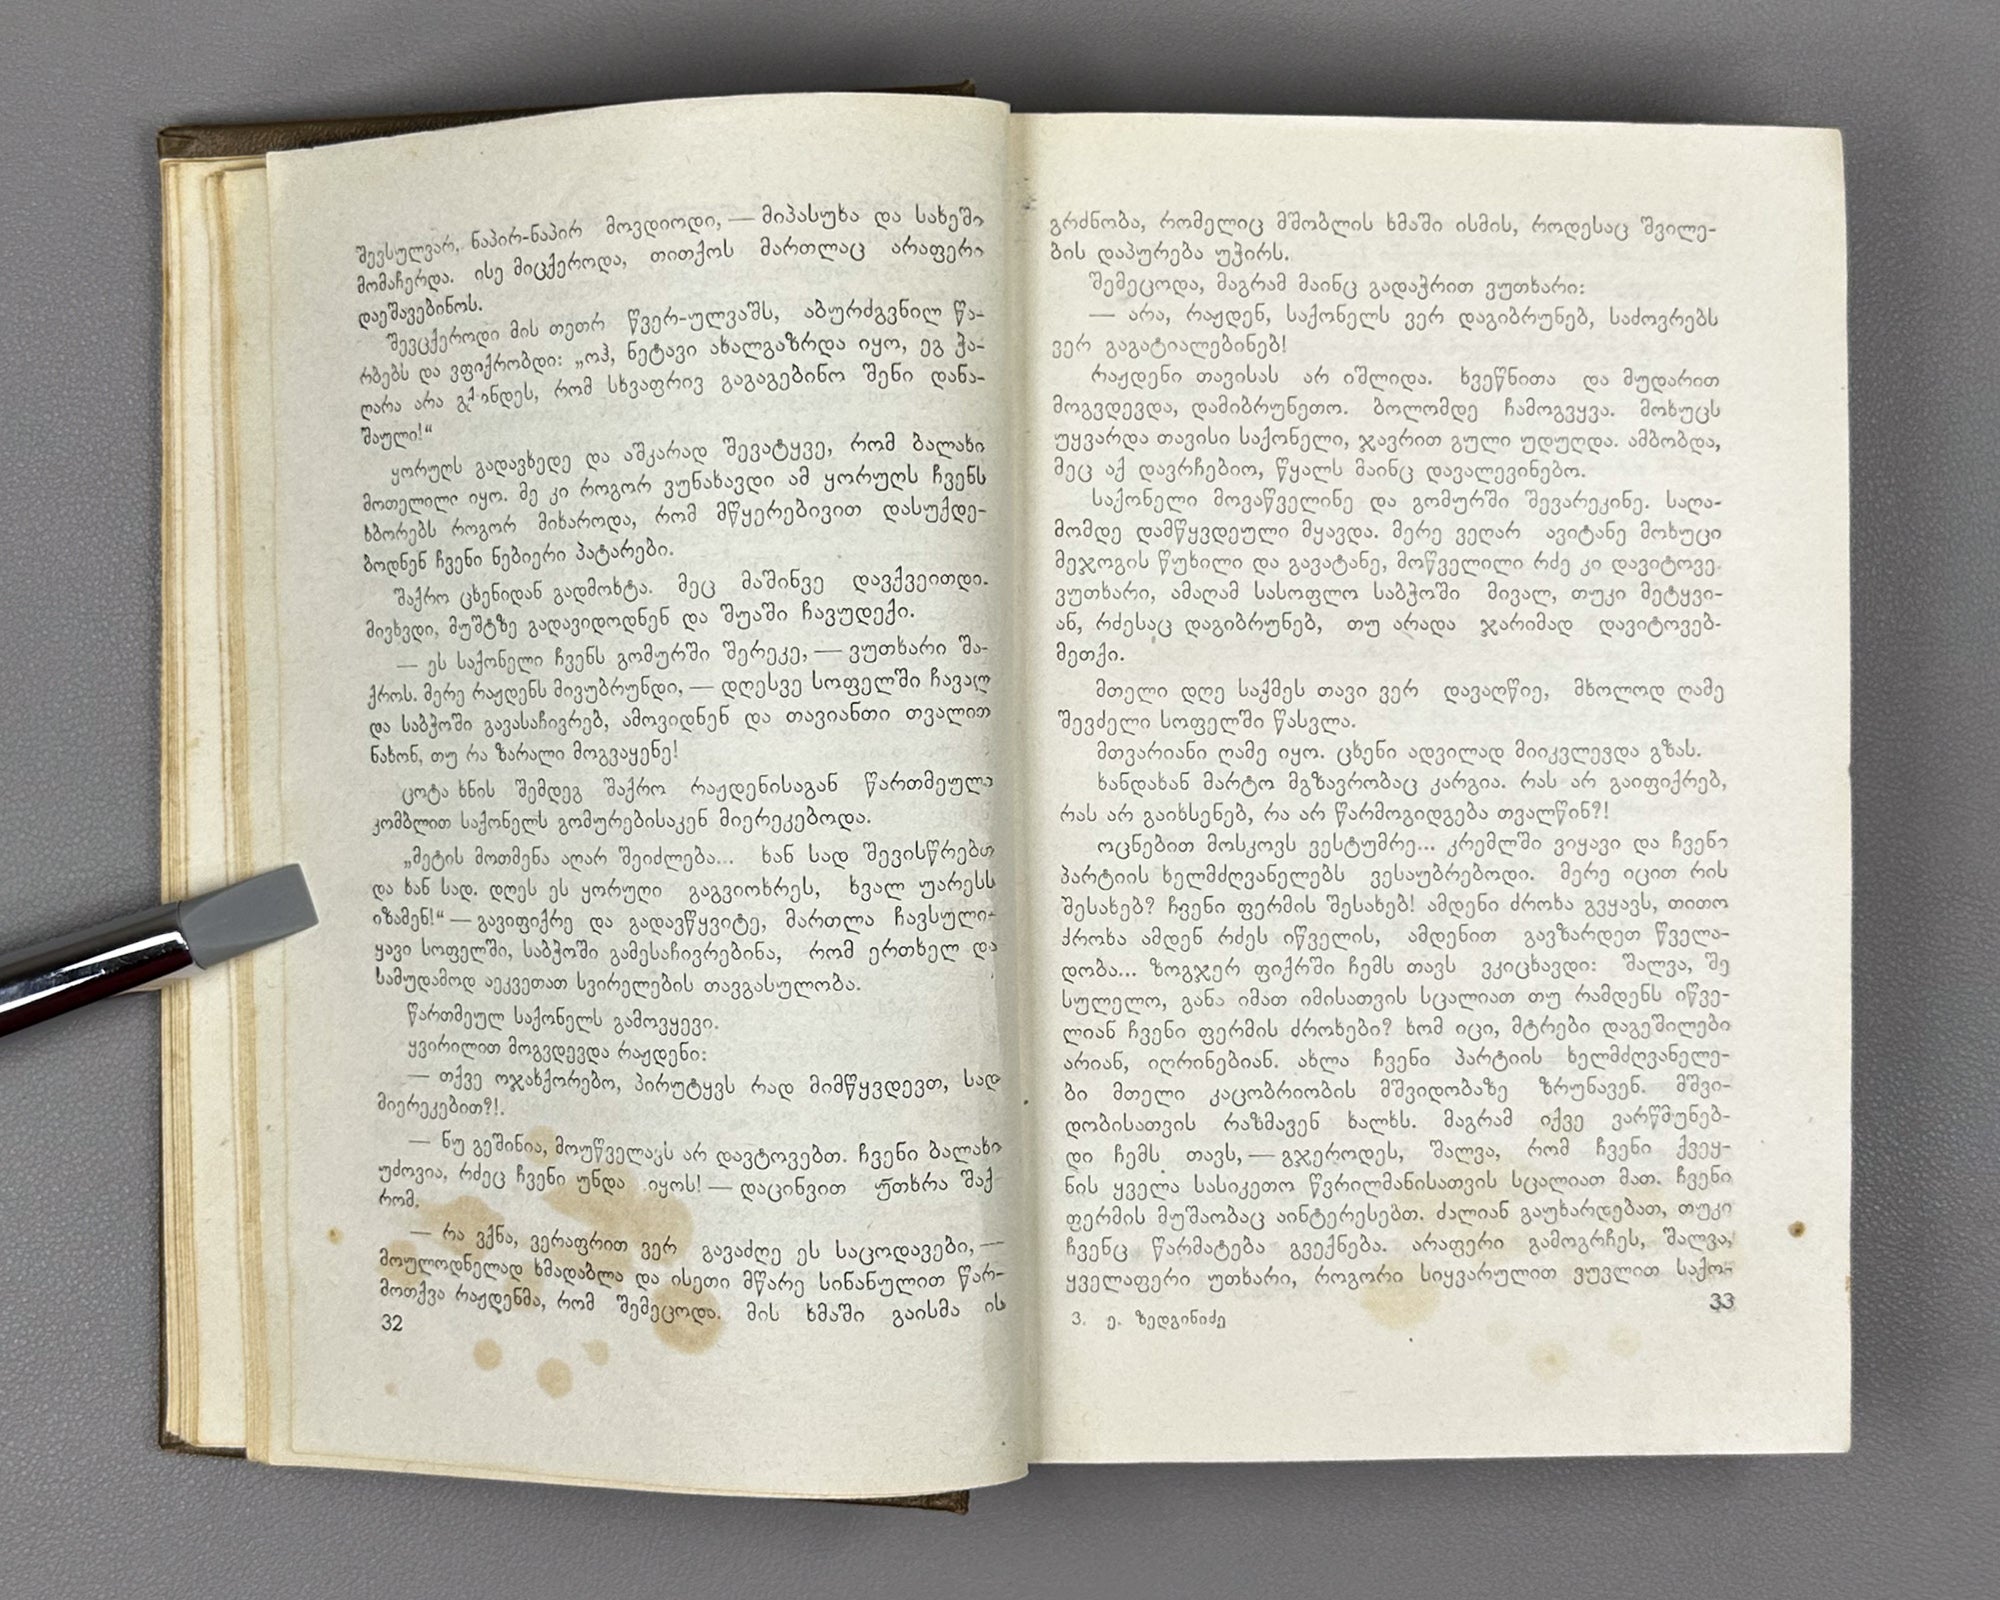 შევსულვარ, ნაპირ-ნაპირ მოვდიოდი, — მიპასუხა და სახეში
მომაჩერდა. ისე მიცქეროდა, თითქოს მართლაც არაფერი
დაეშავებინოს.
შევცქეროდი მის თეთრ წვერ-ულვაშს, აბურძგვნილ წა-
რბებს და ვფიქრობდი: „ოჰ, ნეტავი ახალგაზრდა იყო, ეგ ჭა-
ღარა არა გქონდეს, რომ სხვაფრივ გაგაგებინო შენი დანა-
შაული!“
ყორუღს გადავხედე და აშკარად შევატყვე, რომ ბალახი
მოთელილი იყო. მე კი როგორ ვუნახავდი ამ ყორუღს ჩვენს
ხბორებს როგორ მიხაროდა, რომ მწყერებივით დასუქდე-
ბოდნენ ჩვენი ნებიერი პატარები.
შაქრო ცხენიდან გადმოხტა. მეც მაშინვე დავქვეითდი.
მივხვდი, მუშტზე გადავიდოდნენ და შუაში ჩავუდექი.
— ეს საქონელი ჩვენს გომურში შერეკე, — ვუთხარი შა-
ქროს. მერე რაჟდენს მივუბრუნდი, — დღესვე სოფელში ჩავალ
და საბჭოში გავასაჩივრებ, ამოვიდნენ და თავიანთი თვალით
ნახონ, თუ რა ზარალი მოგვაყენე!
ცოტა ხნის შემდეგ შაქრო რაჟდენისაგან წართმეული
კომბლით საქონელს გომურებისაკენ მიერეკებოდა.
„მეტის მოთმენა აღარ შეიძლება... ხან სად შევისწრებთ
და ხან სად. დღეს ეს ყორუღი გაგვიოხრეს, ხვალ უარესს
იზამენ!“ — გავიფიქრე და გადავწყვიტე, მართლა ჩავსული-
ყავი სოფელში, საბჭოში გამესაჩივრებინა, რომ ერთხელ და
სამუდამოდ აეკვეთათ სვირელების თავგასულობა.
წართმეულ საქონელს გამოვყევი.
ყვირილით მოგვდევდა რაჟდენი:
— თქვე ოჯახქორებო, პირუტყვს რად მიმწყვდევთ, სად
მიერეკებით?!.
— ნუ გეშინია, მოუწველავს არ დავტოვებთ. ჩვენი ბალახი
უძოვია, რძეც ჩვენი უნდა იყოს! — დაცინვით უთხრა შაქ
რომ.
— რა ვქნა, ვერაფრით ვერ გავაძღე ეს საცოდავები, —
მოულოდნელად ხმადაბლა და ისეთი მწარე სინანულით წარ-
მოთქვა რაჟდენმა, რომ შემეცოდა. მის ხმაში გაისმა ის
32
გრძნობა, რომელიც მშობლის ხმაში ისმის, როდესაც შვილე-
ბის დაპურება უჭირს.
შემეცოდა, მაგრამ მაინც გადაჭრით ვუთხარი:
— არა, რაჟდენ, საქონელს ვერ დაგიბრუნებ, საძოვრებს
ვერ გაგატიალებინებ!
რაჟდენი თავისას არ იშლიდა. ხვეწნითა და მუდარით
მოგვდევდა, დამიბრუნეთო. ბოლომდე ჩამოგვყვა. მოხუცს
უყვარდა თავისი საქონელი, ჯავრით გული უდუღდა. ამბობდა,
მეც აქ დავრჩებიო, წყალს მაინც დავალევინებო.
საქონელი მოვაწველინე და გომურში შევარეკინე. საღა-
მომდე დამწყვდეული მყავდა. მერე ველარ ავიტანე მოხუცი
მეჯოგის წუხილი და გავატანე, მოწველილი რძე კი დავიტოვე.
ვუთხარი, ამაღამ სასოფლო საბჭოში მივალ, თუკი მეტყვი-
ან, რძესაც დაგიბრუნებ, თუ არადა ჯარიმად დავიტოვებ-
მეთქი.
მთელი დღე საქმეს თავი ვერ დავაღწიე, მხოლოდ ღამე
შევძელი სოფელში წასვლა.
მთვარიანი ღამე იყო. ცხენი ადვილად მიიკვლევდა გზას.
ხანდახან მარტო მგზავრობაც კარგია. რას არ გაიფიქრებ,
რას არ გაიხსენებ, რა არ წარმოგიდგება თვალწინ?!
ოცნებით მოსკოვს ვესტუმრე... კრემლში ვიყავი და ჩვენი
პარტიის ხელმძღვანელებს ვესაუბრებოდი. მერე იცით რის
შესახებ? ჩვენი ფერმის შესახებ! ამდენი ძროხა გვყავს, თითო
ძროხა ამდენ რძეს იწველის, ამდენით გავზარდეთ წველა-
დობა... ზოგჯერ ფიქრში ჩემს თავს ვკიცხავდი: შალვა, შე
სულელო, განა იმათ იმისათვის სცალიათ თუ რამდენს იწვე-
ლიან ჩვენი ფერმის ძროხები? ხომ იცი, მტრები დაგეშილები
არიან, იღრინებიან. ახლა ჩვენი პარტიის ხელმძღვანელე-
ბი მთელი კაცობრიობის მშვიდობაზე ზრუნავენ. მშვი-
დობისათვის რაზმავენ ხალხს. მაგრამ იქვე ვარწმუნებ-
დი ჩემს თავს, — გჯეროდეს, შალვა, რომ ჩვენი ქვეყ-
ნის ყველა სასიკეთო წვრილმანისათვის სცალიათ მათ. ჩვენი
ფერმის მუშაობაც აინტერესებთ. ძალიან გაუხარდებათ, თუკი
ჩვენც წარმატება გვექნება. არაფერი გამოგრჩეს, შალვა,
ყველაფერი უთხარი, როგორი სიყვარულით ვუვლით საქო-
3. ე. ზედგინიძე
33